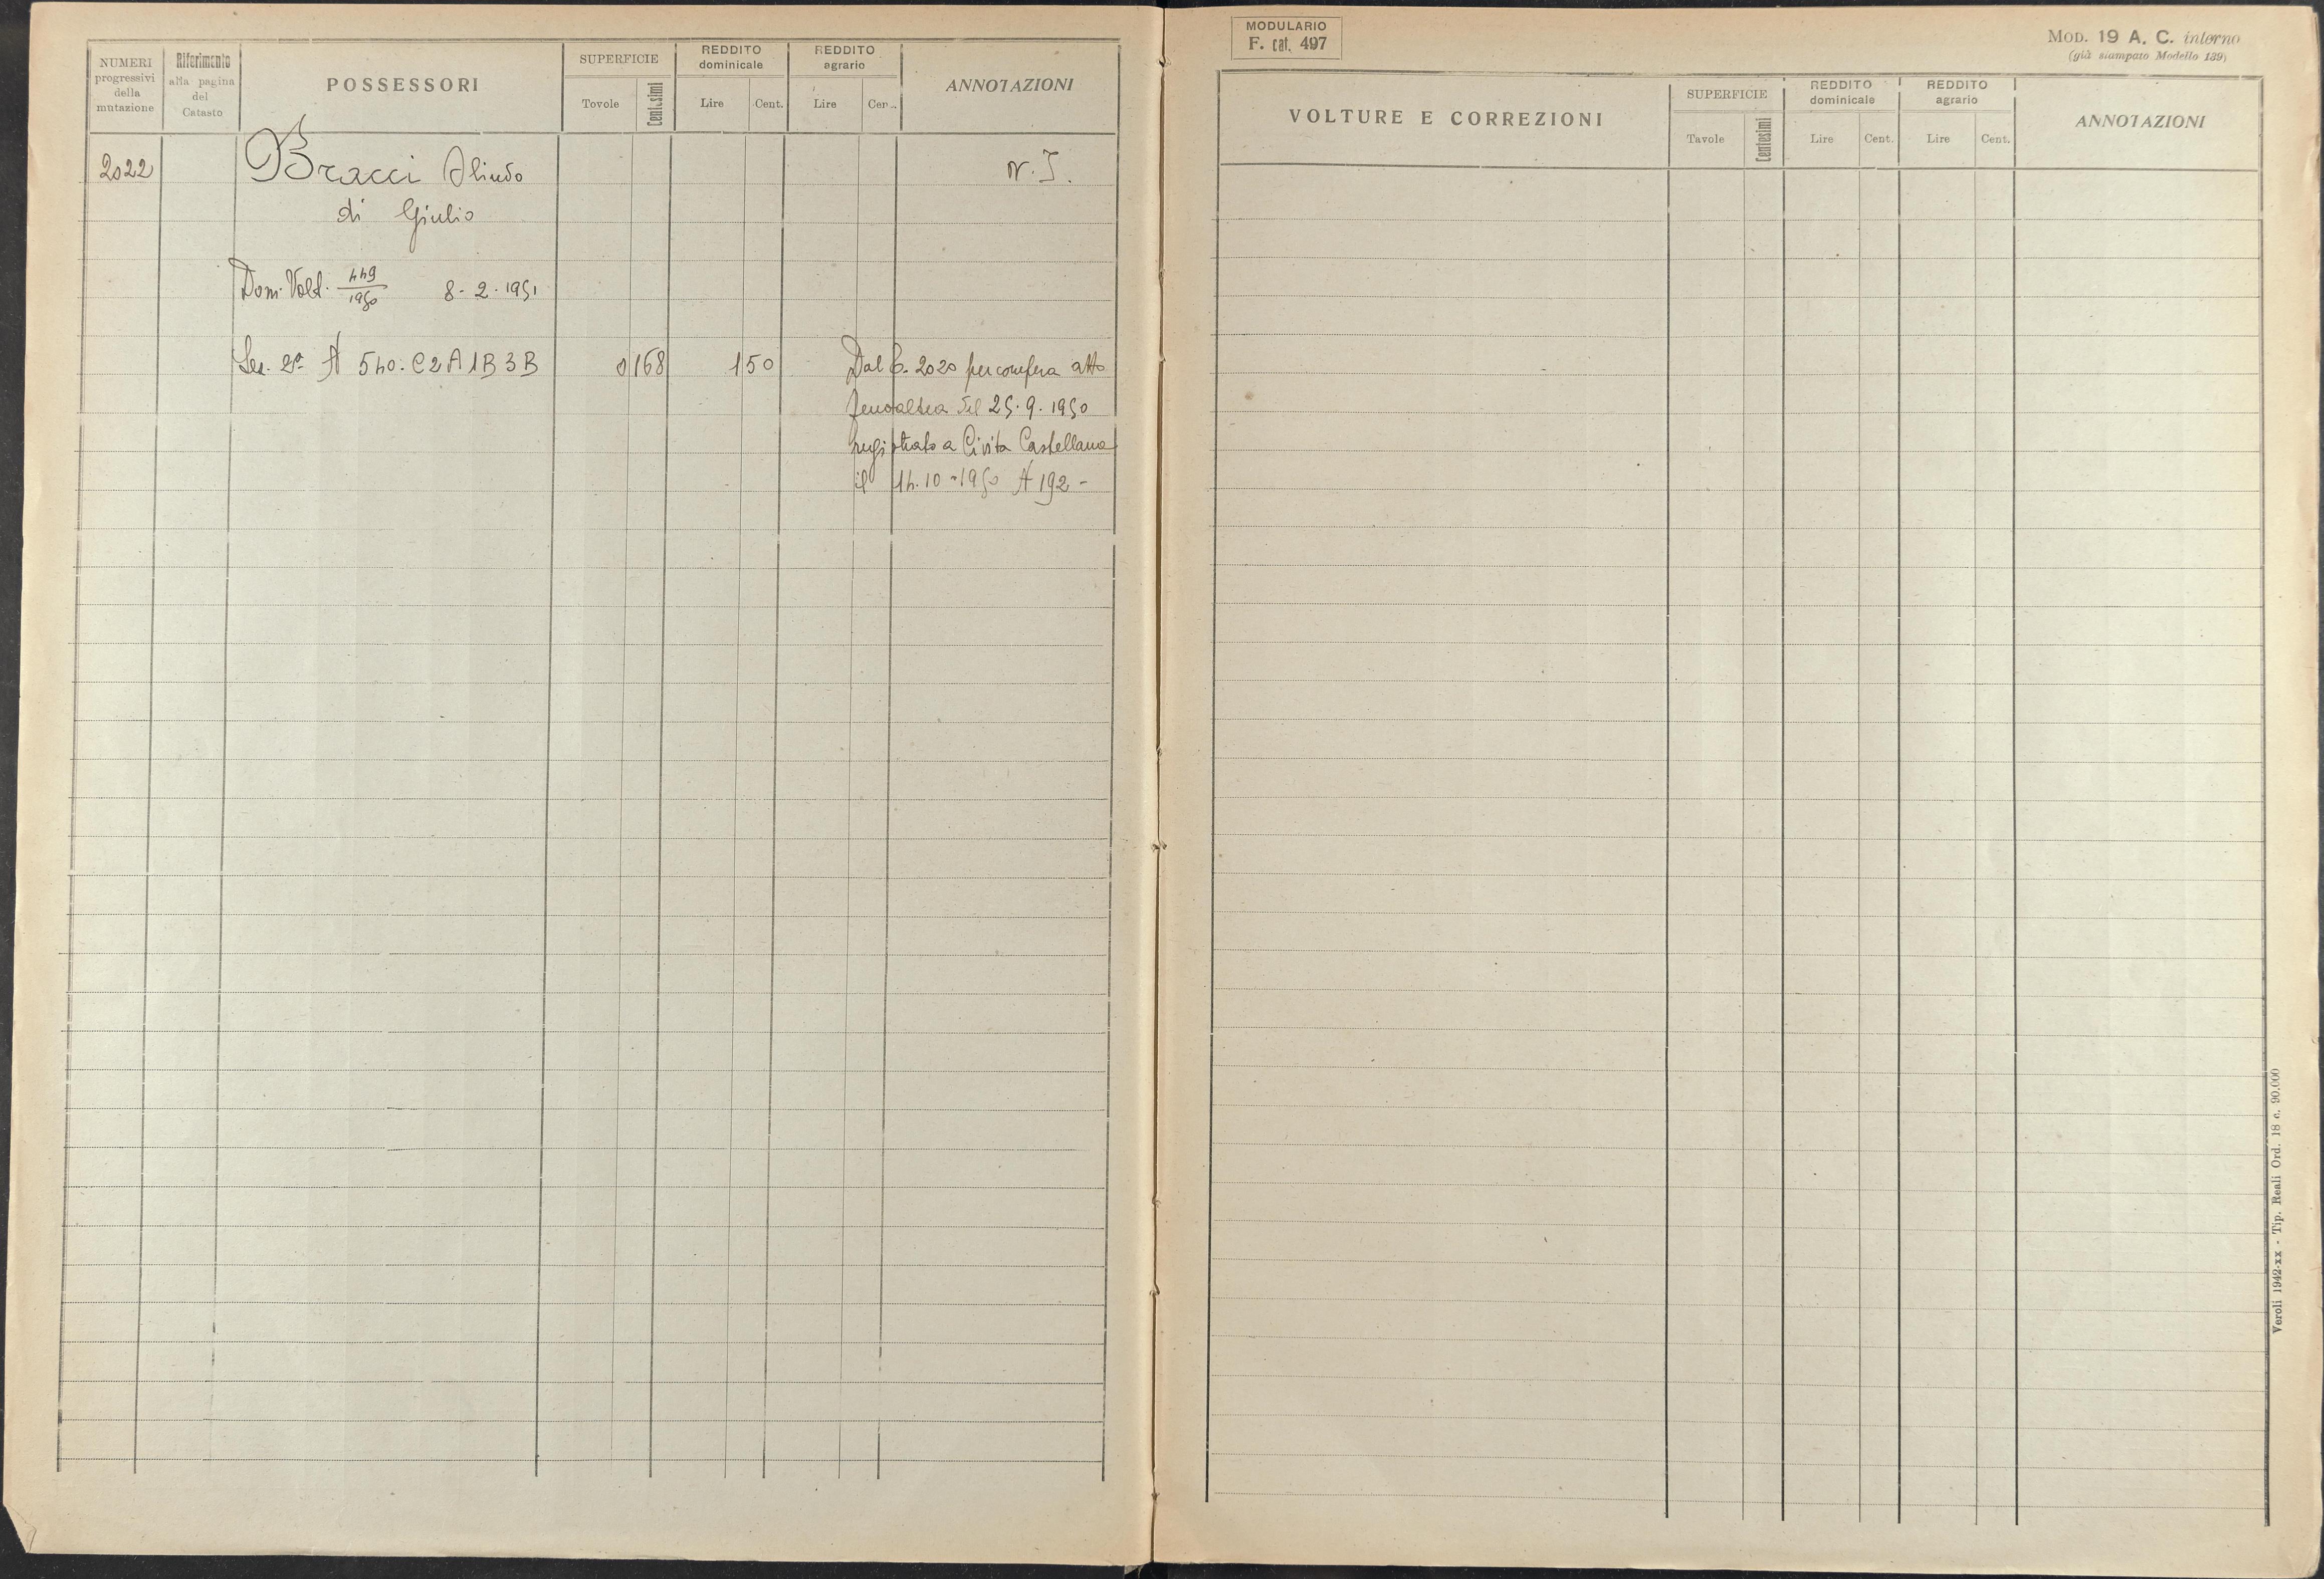 NUMERI
progressivi
della
mutazione
Riferimento
alla pagina
del
Catasto
POSSESSORI
SUPERFICIE
Tavole
Centesimi
REDDITO
dominicale
Lire
Cent.
REDDITO
agrario
Lire
Cen..
ANNOTAZIONI
2022
Bracci Olindo
N.I.
di Giulio
Dom. Volt. 449/1950 8-2-1951
Sez. 2a N 540. C2A1B3B 0 168 1 50
Dal C. 2020 per compera atto
del 25.9.1950
registrato a Civita Castellana
il 14.10-1950 N 192-
MODULARIO
F. cat. 497
MOD. 19 A. C. interno
(già stampato Modello 139)
VOLTURE E CORREZIONI
SUPERFICIE
Tavole
Centesimi
REDDITO
dominicale
Lire
Cent.
REDDITO
agrario
Lire
Cent.
ANNOTAZIONI
Veroli 1942-xx - Tip. Reali Ord. 18 c. 90.000